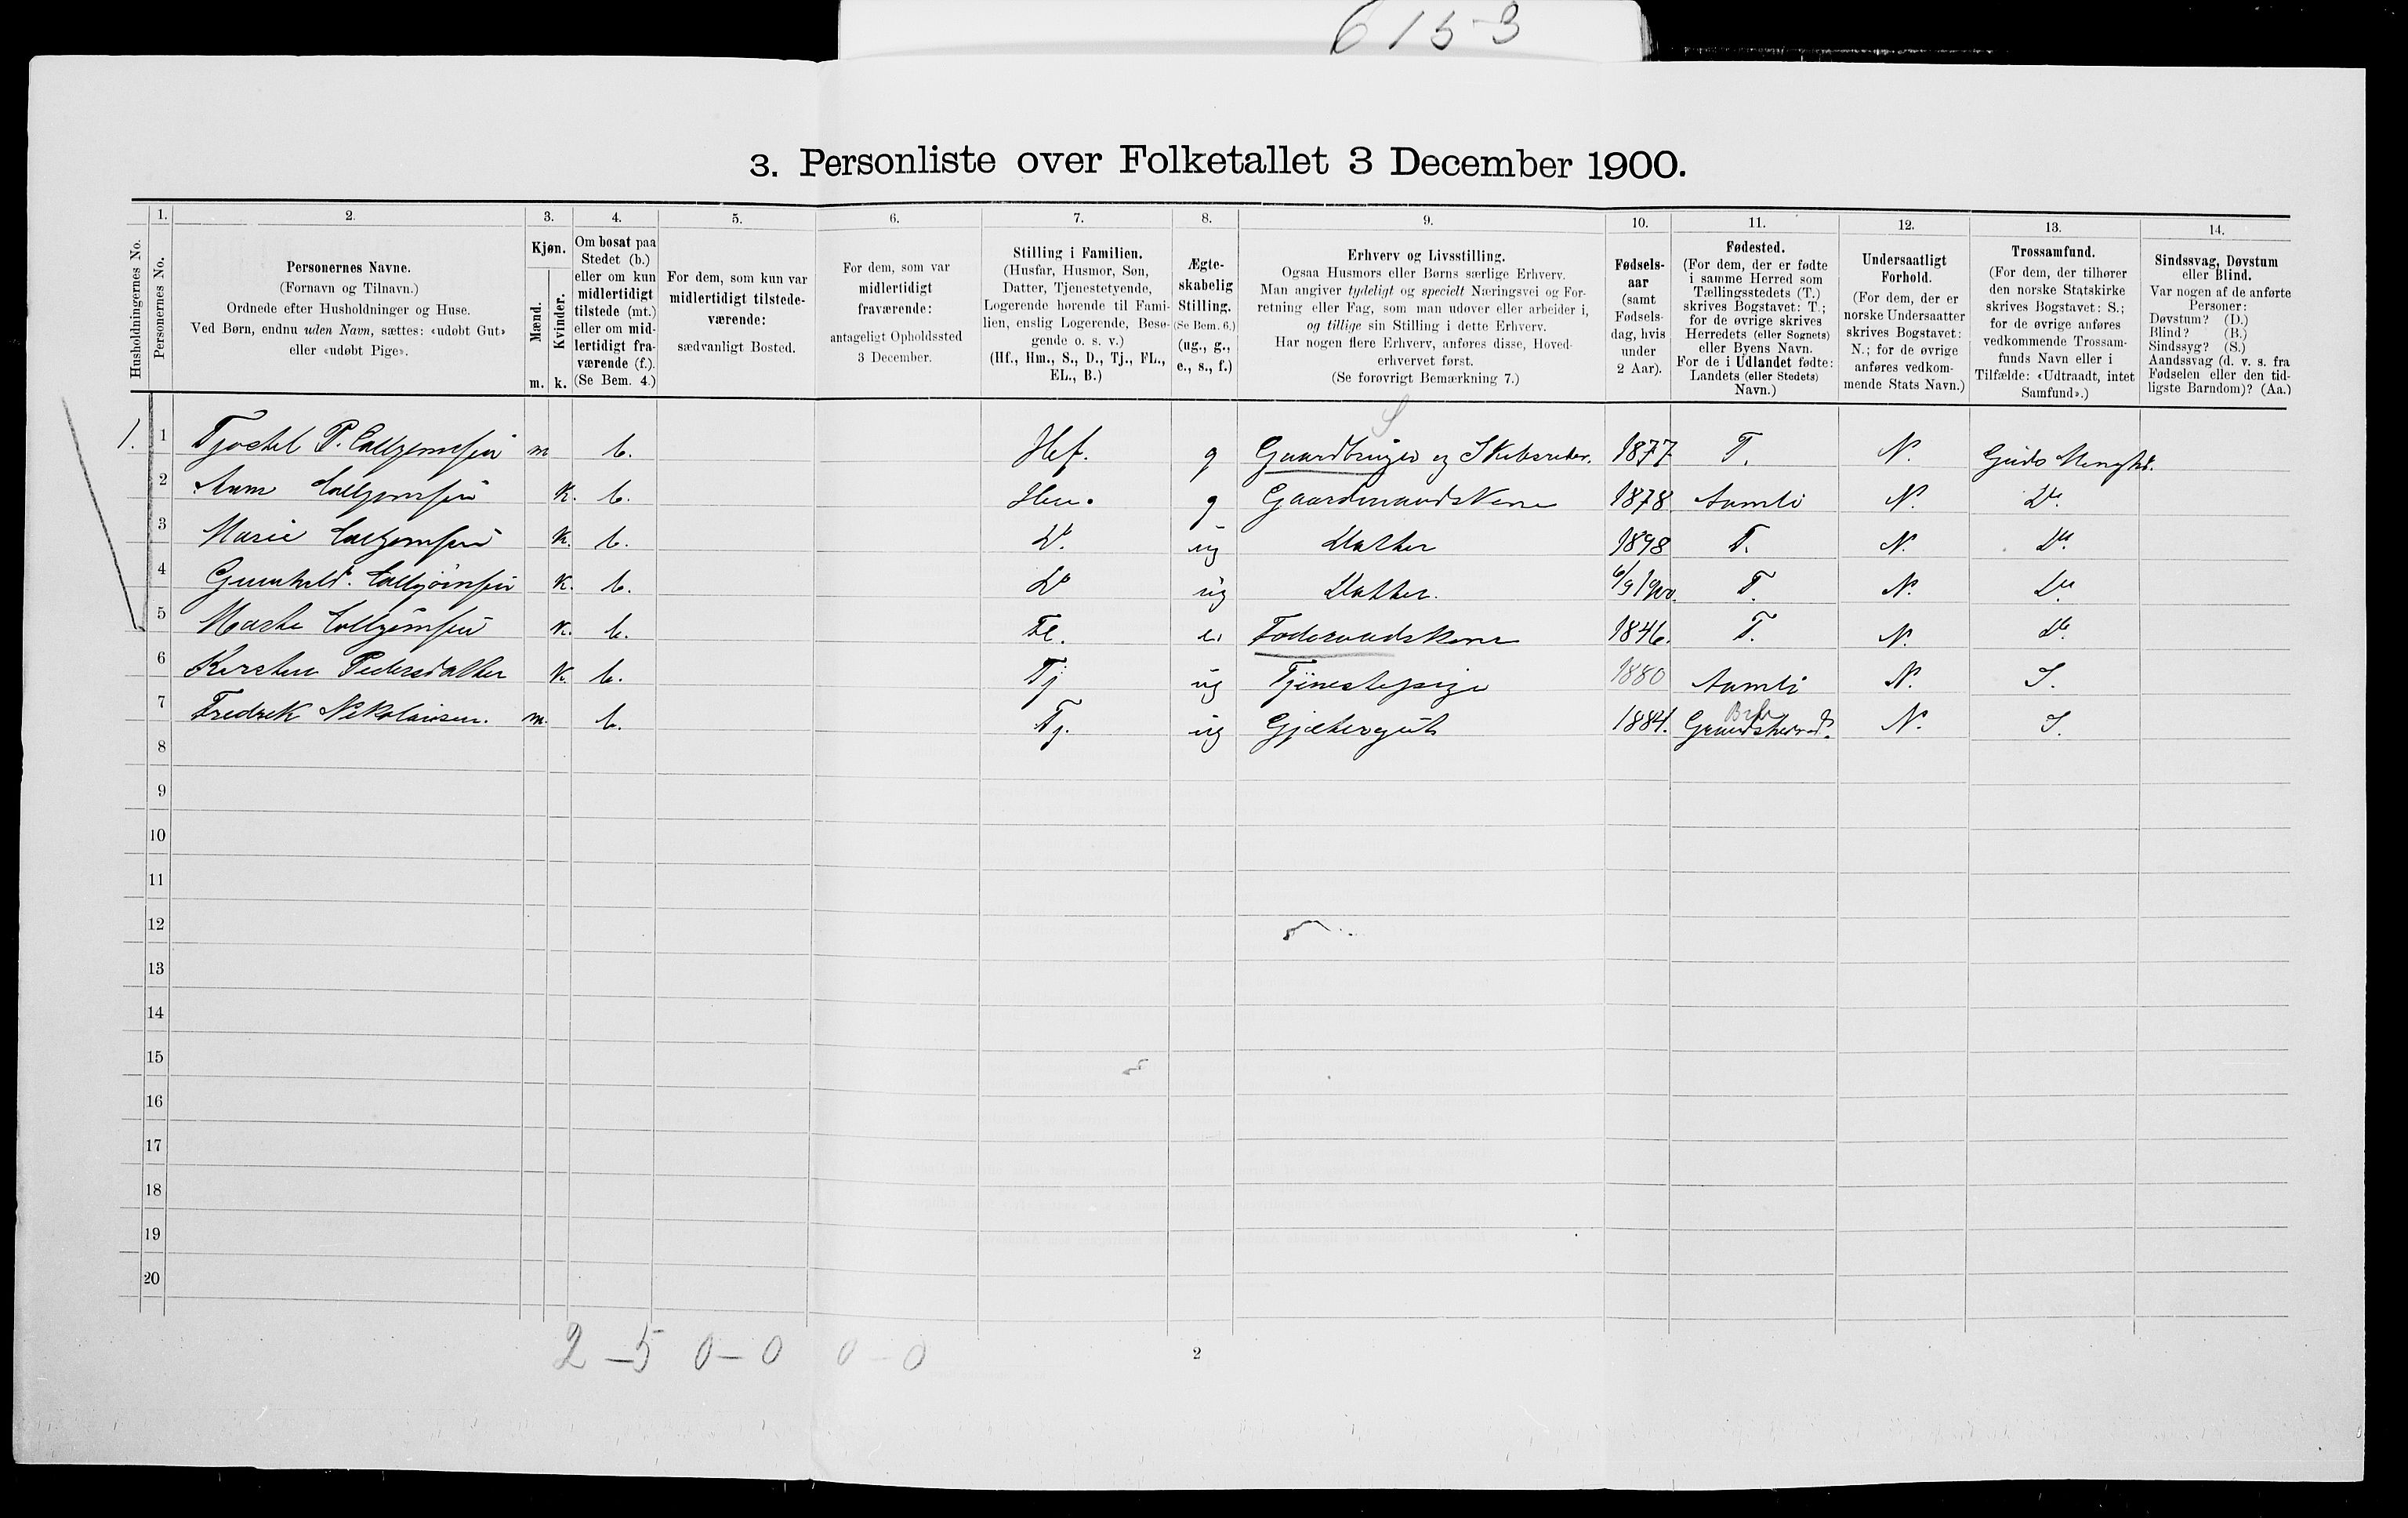 6153
3. Personliste over Folketallet 3 December 1900.
Husholdningernes No.
1.
Personernes No.
2.
Personernes Navne.
(Fornavn og Tilnavn.)
Ordnede efter Husholdninger og Huse.
Ved Børn, endnu uden Navn, sættes: «udøbt Gut»
eller «udøbt Pige».
3.
Kjøn.
Mænd.
m.
Kvinder.
k.
4.
Om bosat paa
Stedet (b.)
eller om kun
midlertidigt
tilstede (mt.)
eller om mid-
lertidigt fra-
værende (f.).
(Se Bem. 4.)
5.
For dem, som kun var
midlertidigt tilstede-
værende:
sædvanligt Bosted.
6.
For dem, som var
midlertidigt
fraværende:
antageligt Opholdssted
3 December.
7.
Stilling i Familien.
(Husfar, Husmor, Søn,
Datter, Tjenestetyende,
Logerende hørende til Fami-
lien, enslig Logerende, Besø-
gende o. s. v.)
(Hf., Hm., S., D., Tj., FL.,
EL., B.)
8.
Ægte-
skabelig
Stilling.
(Se Bem. 6.)
(ug., g.,
e., s., f.)
9.
Erhverv og Livsstilling.
Ogsaa Husmors eller Børns særlige Erhverv.
Man angiver tydeligt og specielt Næringsvei og For-
retning eller Fag, som man udøver eller arbeider i,
og tillige sin Stilling i dette Erhverv.
Har nogen flere Erhverv, anføres disse, Hoved-
erhvervet først.
(Se forøvrigt Bemærkning 7.)
10.
Fødsels-
aar
(samt
Fødsels-
dag, hvis
under
2 Aar).
11.
Fødested.
(For dem, der er fødte
i samme Herred som
Tællingsstedets (T.)
skrives Bogstavet: T.;
for de øvrige skrives
Herredets (eller Sognets)
eller Byens Navn.
For de i Udlandet fødte:
Landets (eller Stedets)
Navn.)
12.
Undersaatligt
Forhold.
(For dem, der er
norske Undersaatter
skrives Bogstavet:
N.; for de øvrige
anføres vedkom-
mende Stats Navn.)
13.
Trossamfund.
(For dem, der tilhører
den norske Statskirke
skrives Bogstavet: S.;
for de øvrige anføres
vedkommende Trossam-
funds Navn eller i
Tilfælde: «Udtraadt, intet
Samfund».)
14.
Sindssvag, Døvstum
eller Blind.
Var nogen af de anførte
Personer:
Døvstum? (D.)
Blind? (B.)
Sindssyg? (S.)
Aandssvag (d. v. s. fra
Fødselen eller den tid-
ligste Barndom)? (Aa.)
S
1. 1 P. m b. Hf. g Gaardbruger og Skibsreder. 1877 T. N. Guds Menghd.
2 k. b. Hm. g Gaardmandskone 1878 Aamli N. Do.
3 Marie k. b. D. ug Datter 1898 T. N. Do.
4 Gunhild. k. b. D ug Datter. 6/9 1900. T. N. Do.
5 k. b. Fl. e. Foderaadskone 1846. T. N. Do.
6 Kirsten Pedersdatter k. b. Tj ug Tjenestepige 1880 Aamli N. S.
7 Fredrek Nikolaisen. m. b. Tj. ug Gjætergut 1884. N. S.
8
9
10
11
12
13
14
15
16
17
18
19
20
2 – 5 0 – 0 0 – 0
2